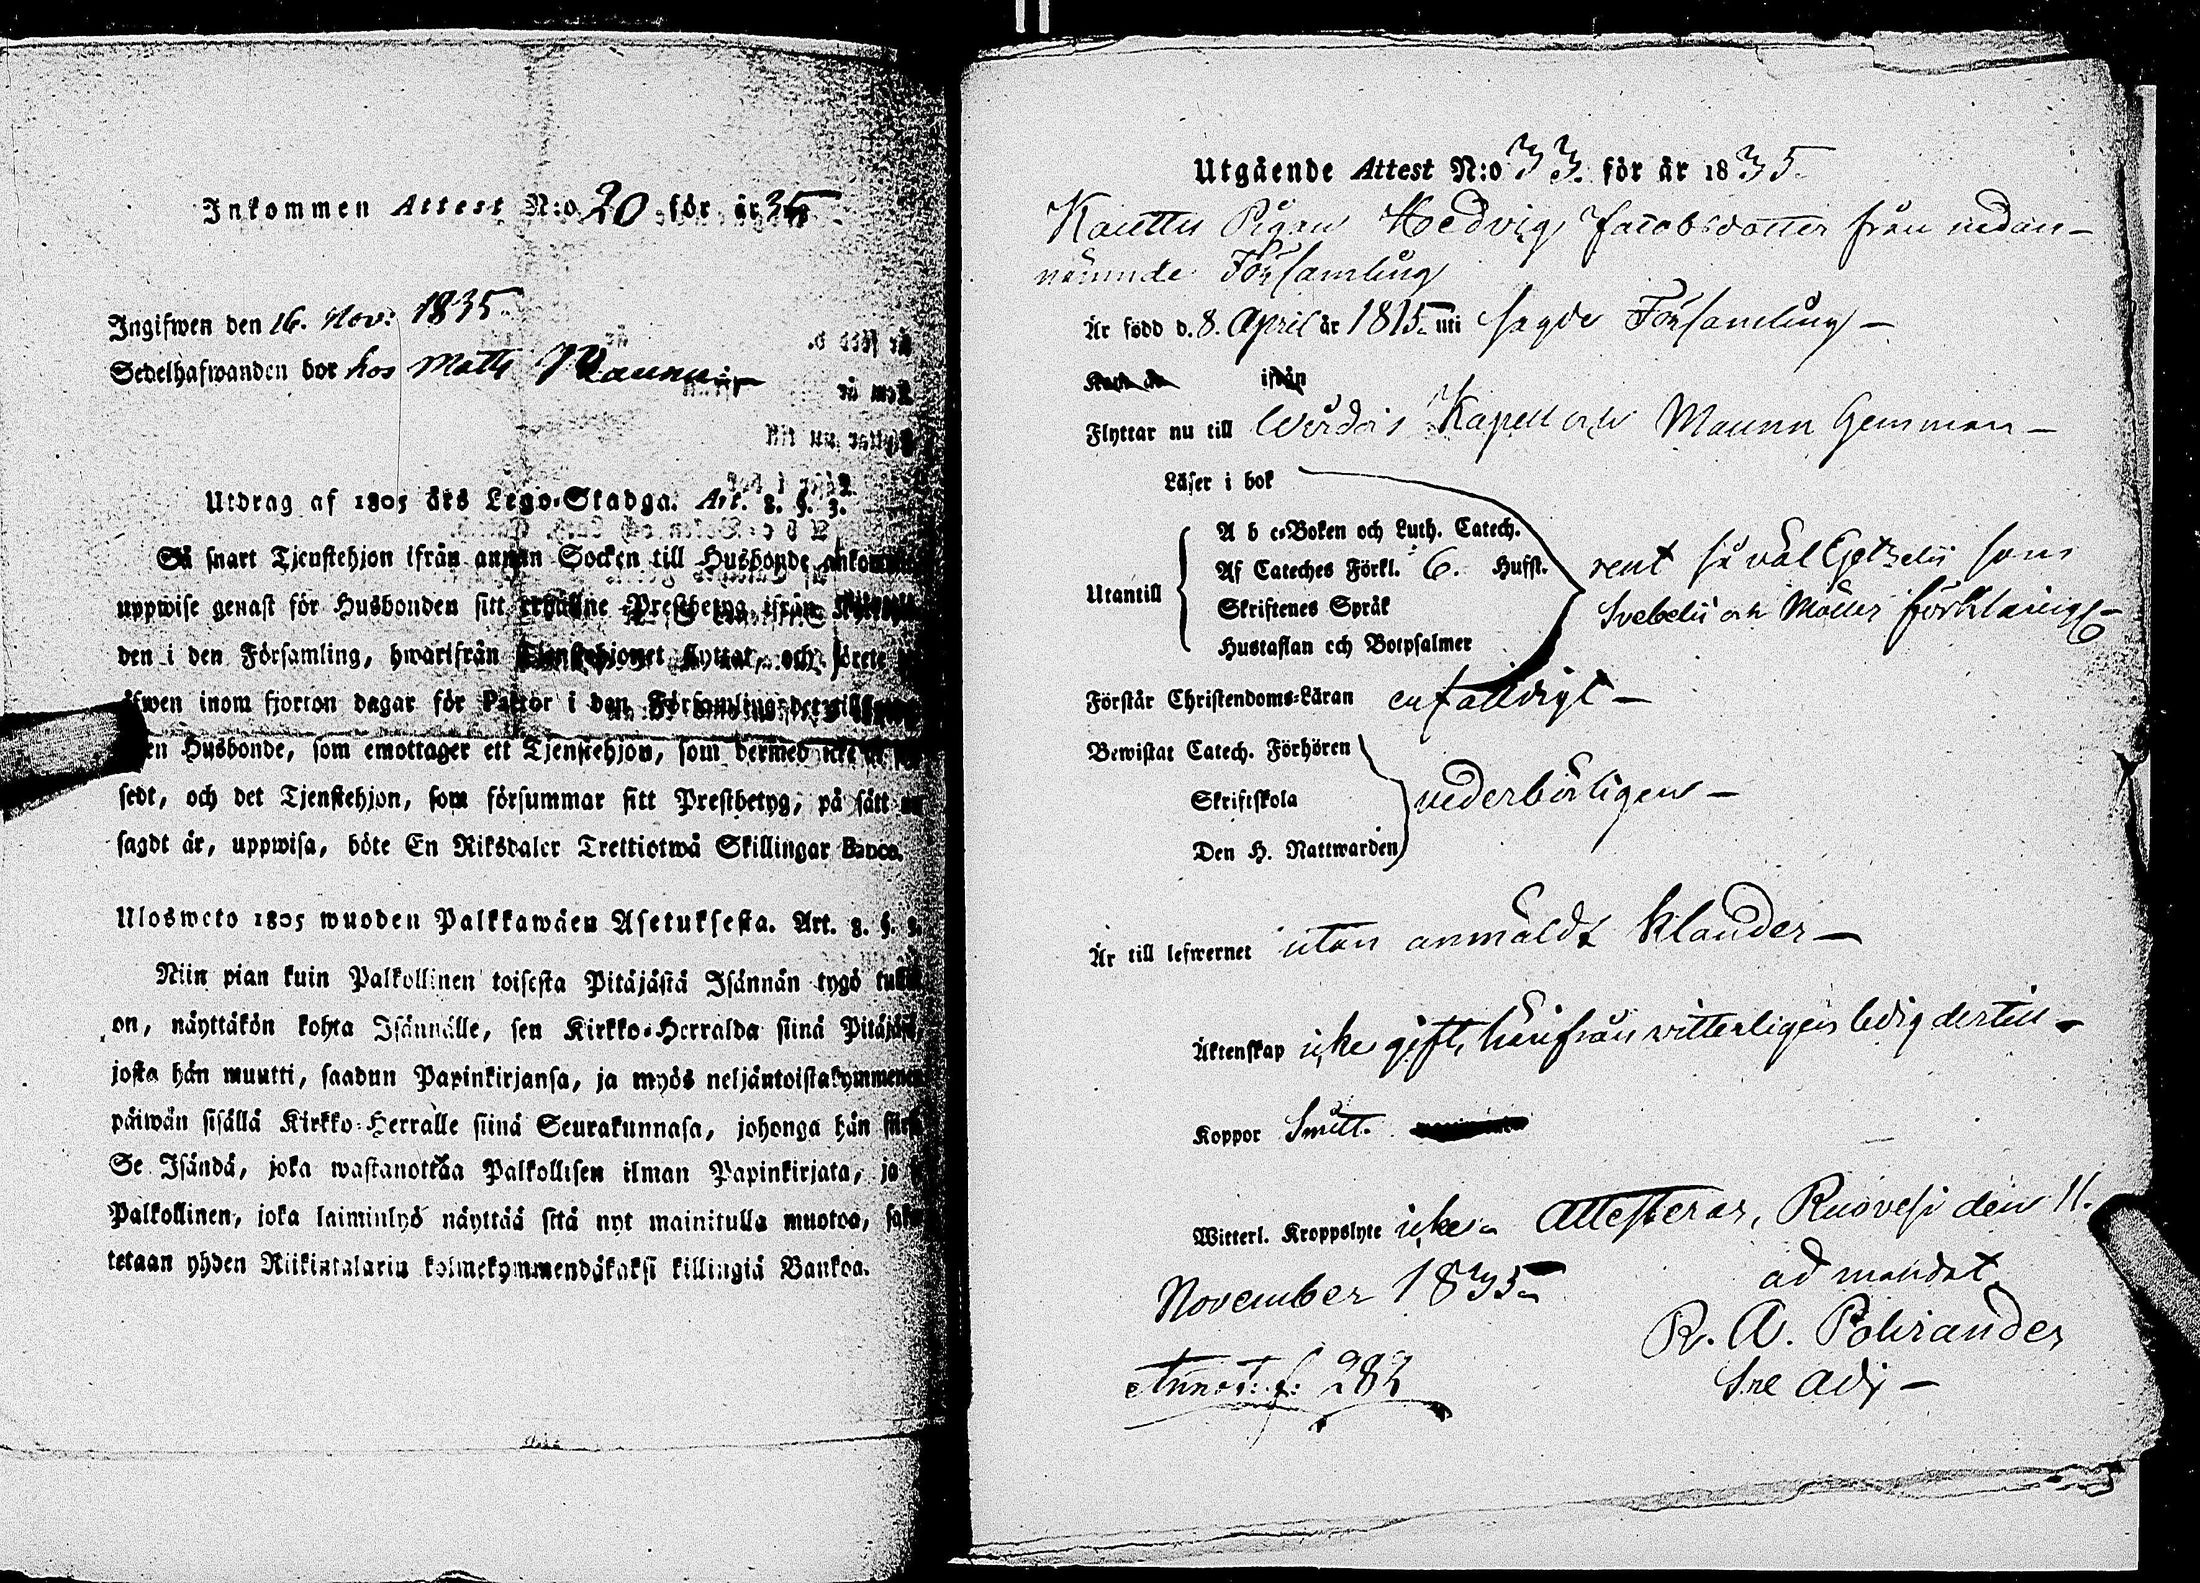 Inkommen Attest N:o 20 för år 35
Ingifwen den 16. Nov: 1835.
Sedelhafwanden bor hos Matts Maunu
Utdrag af 1805 års Lego-Stadga. Art. 8. §. 3.
Så snart Tjenstehjon ifrån annan Socken till Husbonde ankommit
uppwise genast för Husbonden sitt erhållne Prestbetyg ifrån
den i den Församling, hwarifrån Tjenstehjonet flyttat, och förete
äfwen inom fjorton dagar för Pastor i den Församling
en Husbonde, som emottager ett Tjenstehjon, som dermed icke är
sedt, och det Tjenstehjon, som försummar sitt Prestbetyg, på sätt nu
sagdt är, uppwisa, böte En Riksdaler Trettiotwå Skillingar Banco.
Ulosweto 1805 wuoden Palkkawäen Asetuksesta. Art. 8. §. 3.
Niin pian kuin Palkollinen toisesta Pitäjästä Isännän tygö tullut
on, näyttäkön kohta Isännälle, sen Kirkko-Herralda siinä Pitäjäs,
josta hän muutti, saadun Papinkirjansa, ja myös neljäntoistakymmenen
päiwän sisällä Kirkko-Herralle siinä Seurakunnasa, johonga hän
Se Isändä, joka wastanottaa Palkollisen ilman Papinkirjata, ja
Palkollinen, joka laiminlyö näyttää sitä nyt mainitulla muotoa,
tetaan yhden Riikintalarin kolmekymmendäkaksi killingiä Bankoa.
Utgående Attest N:o 33. för år 1835.
Kauttu Pigan Hedvig Jacobsdotter från nedan-
nämnde Församling
Är född d. 8. April år 1815. uti sagde Församling —
Kom år ifrån
Flyttar nu till Wirdois Kapell och Maunu Hemman —
Läser i bok
A b c-Boken och Luth. Catech.
Utantill Af Cateches Förkl. 6. Hufst. rent så väl Gezelii som
Skriftenes Språk Svebelii och Möllers förklaring
Hustaflan och Botpsalmer
Förstår Christendoms-Läran enfaldigt —
Bewistat Catech. Förhören
Skriftskola vederbörligen —
Den H. Nattwarden
Är till lefwernet utan anmäldt klander —
Äktenskap icke gift, härifrån vitterligen ledig dertill —
Koppor Smitt.
Witterl. Kroppslyte icke. Attesterar, Ruovesi den 11.
November 1835.
ad mandat.
R. A. Polviander
S:ne Adj —
Annot: f: 282